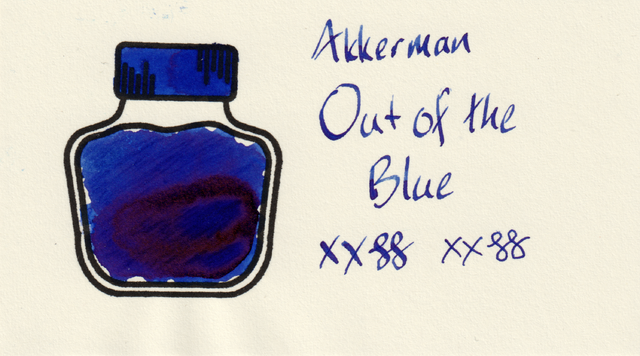 Akkerman
Out of the
Blue
xx88 xx88